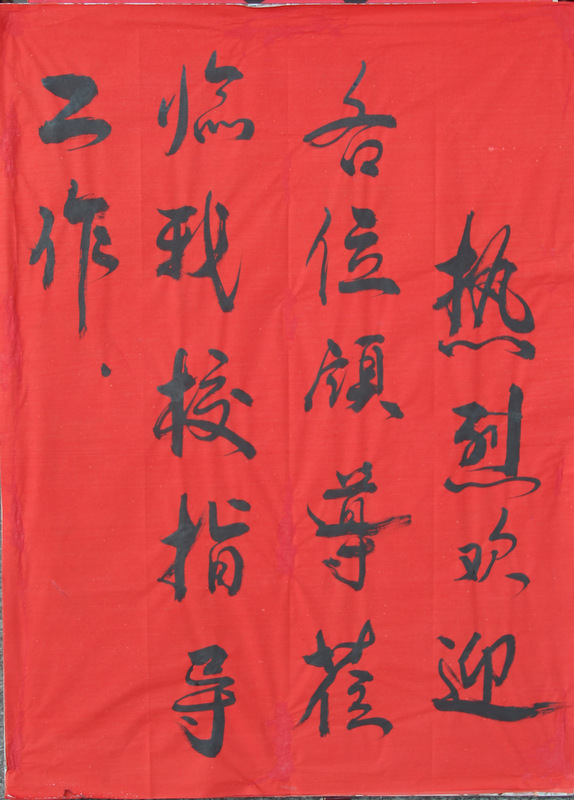 热烈欢迎
各位领導莅
临我校指导
工作.